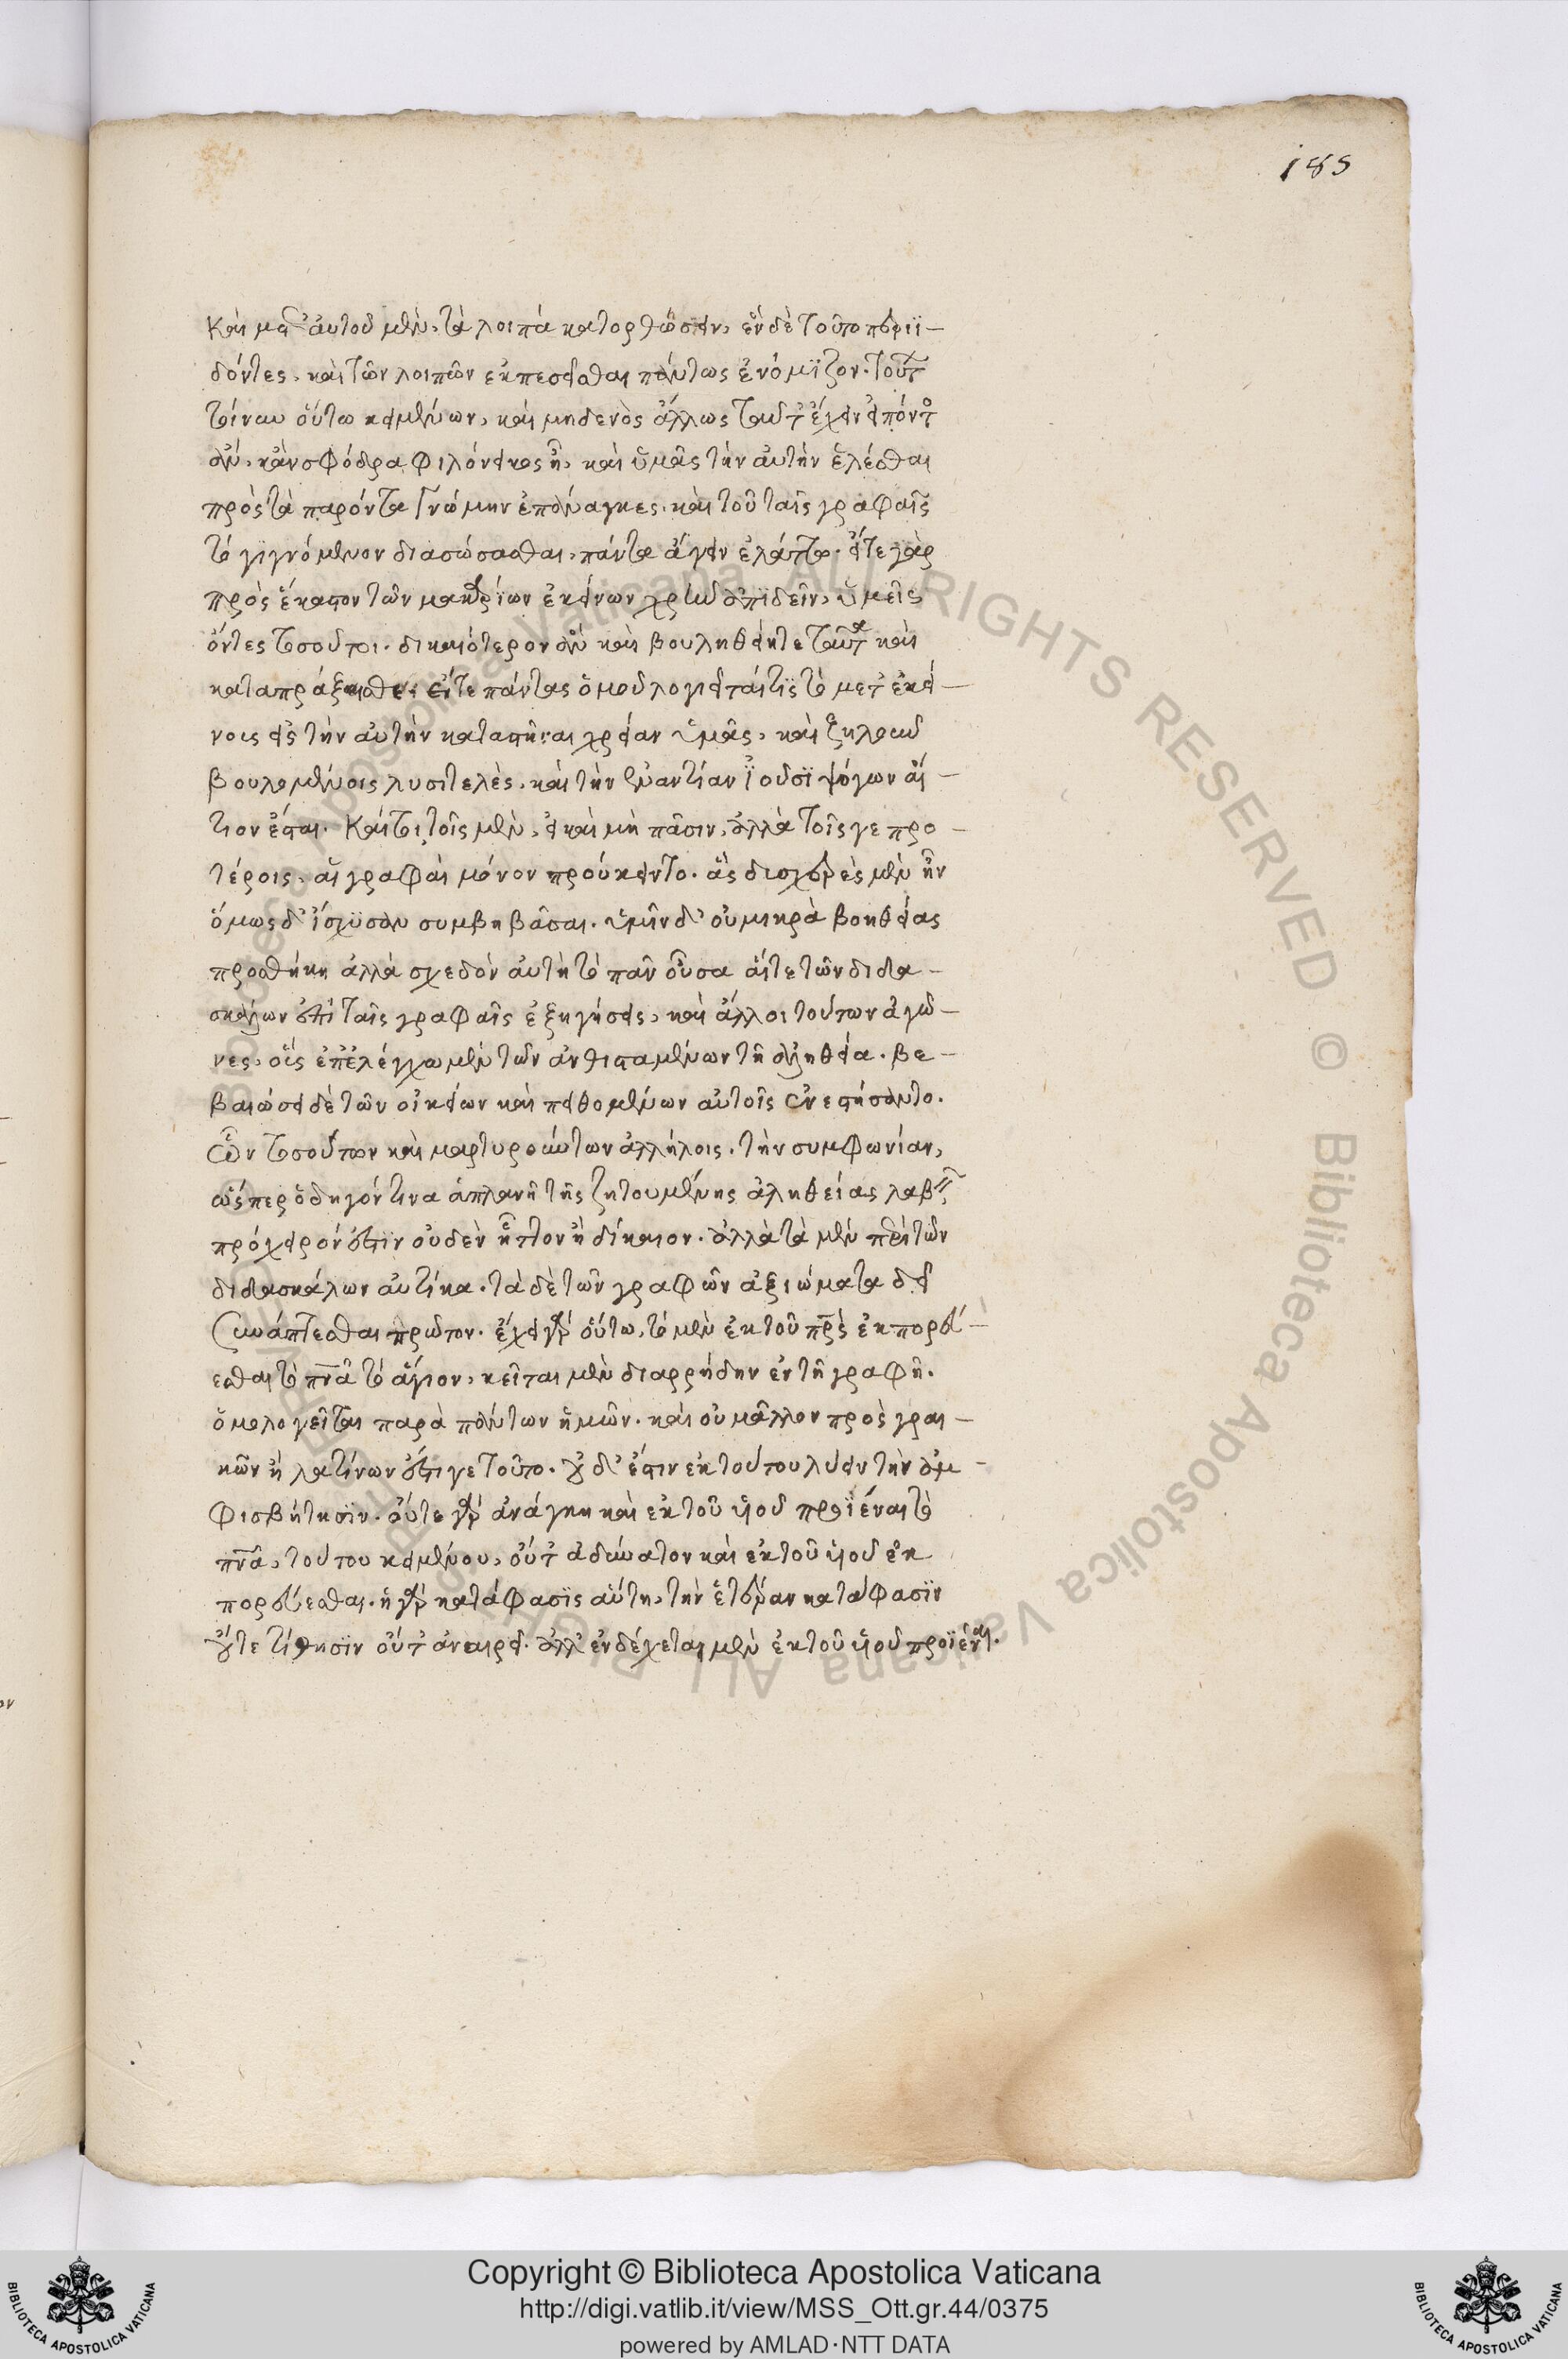 185
καὶ μετ' αὐτοῦ μὲν, τὰ λοιπὰ κατορθώσειν, ἓν δὲ τοῦτο περιϊ–
δόντες, καὶ τῶν λοιπῶν ἐκπεσεῖσθαι πάντως ἐνόμιζον. τούτων
τοίνυν οὕτω κειμένων, καὶ μηδενὸς ἄλλως ταῦτ' ἔχειν εἰπόντος
ἂν, κἂν σφόδρα φιλόνεικος ᾖ, καὶ ὑμᾶς τὴν αὐτὴν ἑλέσθαι
πρὸς τὰ παρόντα γνώμην ἐπάναγκες. καὶ τοῦ ταῖς γραφαῖς
τὸ γιγνόμενον διασώσασθαι, πάντα ἄγειν ἐλάττω. εἴτε γὰρ
πρὸς ἕκαστον τῶν μακαρίων ἐκείνων χρεὼν ἀπϊδεῖν, ὑμεῖς
ὄντες τοσοῦτοι. δικαιότερον ἂν καὶ βουληθείητε ταῦτα καὶ
καταπράξαισθε· εἴτε πάντας ὁμοῦ λογιεῖταί τις τὸ μετ' ἐκεί–
νοις εἰς τὴν αὐτὴν καταστῆσαι χρείαν ὑμᾶς, καὶ ζηλοῦν
βουλομένοις λυσιτελὲς, καὶ τὴν ἐναντίαν ἰοῦσι ψόγων αἴ–
τιον ἔσται. καίτοι τοῖς μὲν, εἰ καὶ μὴ πᾶσιν, ἀλλὰ τοῖς γε προ–
τέροις, αἱ γραφαὶ μόνον προὔκειντο. ἃς δισχερὲς μὲν ἦν
ὅμως δ' ἴσχυσαν συμβηβᾶσαι. ὑμῖν δ' οὐ μικρὰ βοηθείας
προσθήκη ἀλλὰ σχεδὸν αὐτὴ τὸ πᾶν οὖσα αἵ τε τῶν διδα–
σκάλων ἐπὶ ταῖς γραφαῖς ἐξηγήσεις, καὶ ἄλλοι τούτων ἀγῶ–
νες, οἷς ἐπ' ἐλέγχω μὲν τῶν ἀνθισταμένων τῇ ἀληθεία. βε–
βαιώσει δὲ τῶν οἰκείων καὶ πειθομένων αὐτοῖς ἐνεστήσαντο.
ὧν τοσούτων καὶ μαρτυρούντων ἀλλήλοις, τὴν συμφωνίαν,
ὥσπερ ὁδηγόν τινα ἀπλανῆ τῆς ζητουμένης ἀληθείας λαβεῖν
πρόχειρόν ἐστιν οὐδὲν ἧττον ἢ δίκαιον. ἀλλὰ τὰ μὲν περὶ τῶν
διδασκάλων αὐτίκα. τὰ δὲ τῶν γραφῶν ἀξιώματα δεῖ
συνάπτεσθαι πρῶτον. ἔχει γὰρ οὕτω, τὸ μὲν ἐκ τοῦ πρς ἐκπορεύ–
εσθαι τὸ πνα τὸ ἅγιον, κεῖται μὲν διαρρήδην ἐν τῇ γραφῇ.
ὁμολογεῖται παρὰ πάντων ἡμῶν. καὶ οὐ μᾶλλον πρὸς γραι–
κῶν ἢ λατίνων ἐστί γε τοῦτο. οὐδ' ἔστιν ἐκ τούτου λύειν τὴν ἀμ–
φισβήτησϊν. οὔτε γὰρ ἀνάγκη καὶ ἐκ τοῦ υἱοῦ προϊέναι τὸ
πνα, τούτου κειμένου, οὔτ' ἀδύνατον καὶ ἐκ τοῦ υἱοῦ ἐκ
πορεύεσθαι. ἡ γὰρ κατάφασϊς αὕτη, τὴν ἑτέραν κατάφασϊν
οὔτε τίθησϊν οὔτ' ἀναιρεῖ. ἀλλ' ἐνδέχεται μὲν ἐκ τοῦ υἱοῦ προϊέναι.
Copyright © Biblioteca Apostolica Vaticana
http://digi.vatlib.it/view/MSS_Ott.gr.44/0375
powered by AMLAD·NTT DATA
BIBLIOTECA APOSTOLICA VATICANA
BIBLIOTECA APOSTOLICA VATICANA